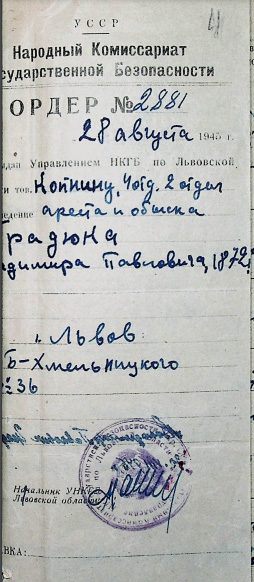 4
УССР
Народный Комиссариат
сударственной Безопасности
ОРДЕР № 2881
28 августа 1945 г.
дан Управлением НКГБ по Львовской
ти тов. Копнину, 4 отд. 2 отдел
ведение ареста и обыска
радюка
адимира Павловича, 1872
г. Львов
Б-Хмельницкого
36
Начальник УНКГБ
Львовской области
ВКА: